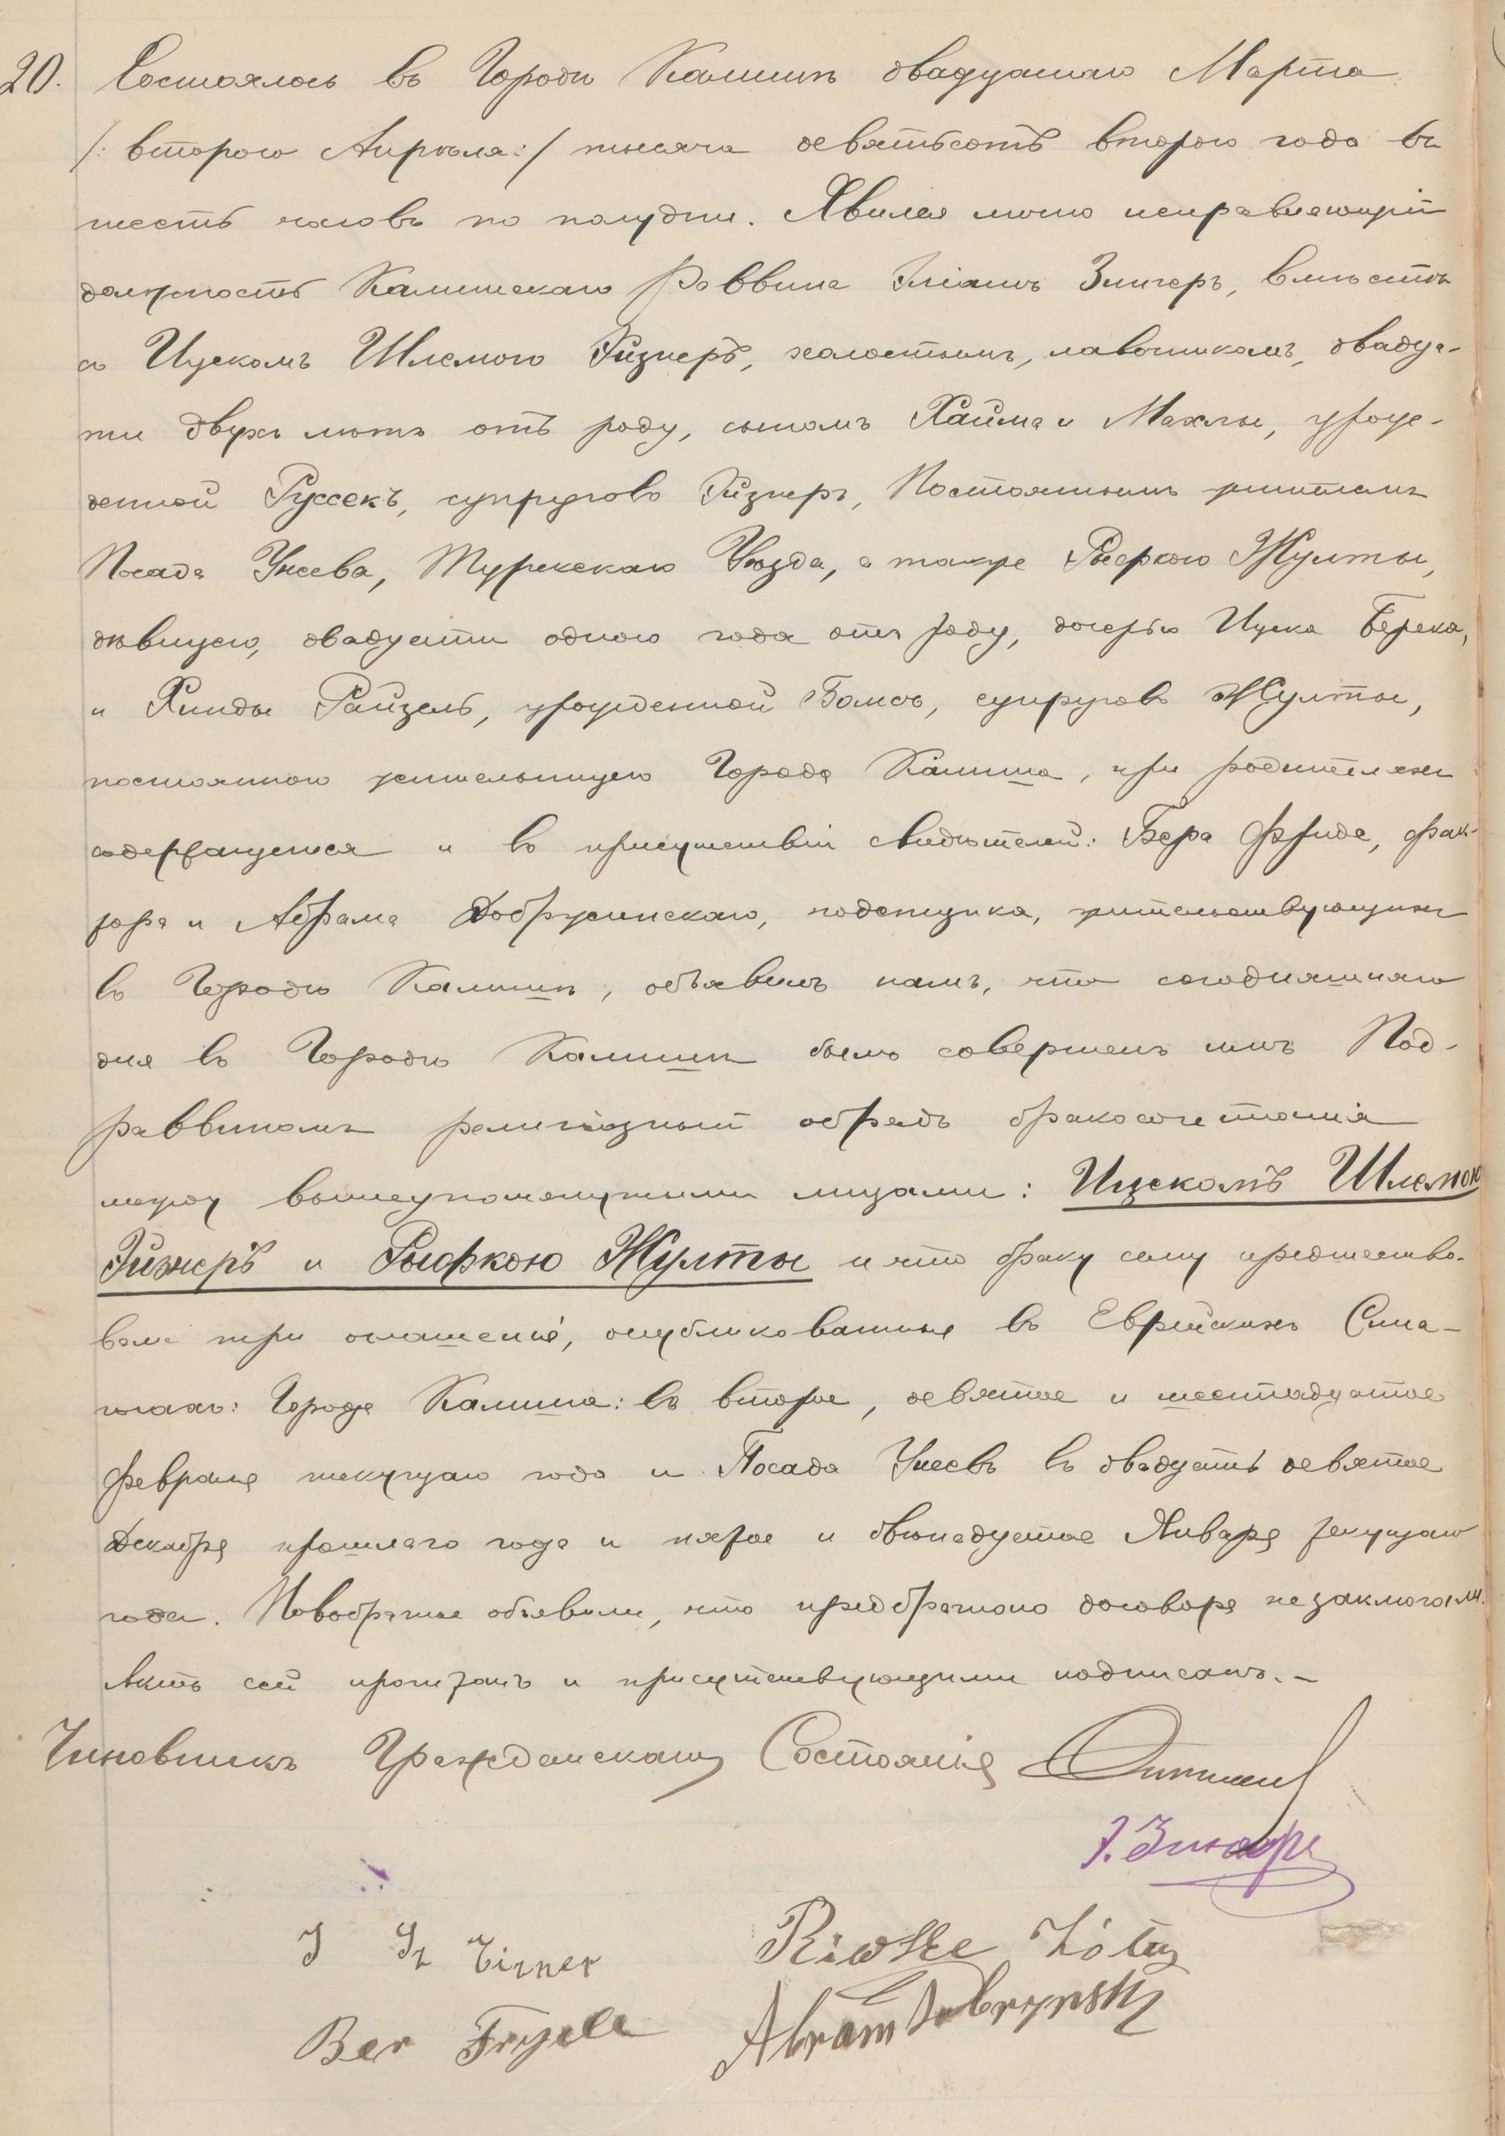 20. Состоялось въ Городѣ Калишѣ двадцатаго Марта
/: второго Апрѣля:/ тысяча девятьсотъ второго года въ
шесть часовъ по полудни. Явился лично исправляющій
должность Калишскаго Раввина Зингеръ, вмѣстѣ
съ Ицекомъ Шлемою Эйзнеръ, холостымъ, лавочникомъ, двадца-
ти двухъ лѣтъ отъ роду, сыномъ Хаима и Махлы, урож-
денной Руссекъ, супруговъ Эйзнеръ, Постояннымъ жителемъ
Посада Унеева, Турекскаго Уѣзда, а также Рыфкою Жулты,
дѣвицею, двадцати одного года отъ роду, дочерью Ицека Берека,
и Хинды Райзель, урожденной Бомсъ, супруговъ Жулты,
постоянною жительницею Города Калиша, при родителяхъ
содержащеюся и въ присутствіи свидѣтелей: Бера Фриде, фак-
тора и Абрама Добржинскаго, поденщика, жительствующихъ
въ Городѣ Калишѣ, объявилъ намъ, что сегодняшняго
дня въ Городѣ Калишѣ былъ совершенъ имъ Под-
раввиномъ религіозный обрядъ бракосочетанія
между вышеупомянутыми лицами: Ицекомъ Шлемою
Эйзнеръ и Рыфкою Жулты и что браку сему предшество-
вали три оглашенія, опубликованныя въ Еврейскихъ Сина-
гогахъ: Города Калиша: въ второе, девятое и шестнадцатое
Февраля текущаго года и Посада Унеевъ въ двадцать девятое
Декабря прошлаго года и пятое и двѣнадцатое Января текущаго
года. Новобрачные объявили, что предбрачного договора не заключали.
Актъ сей прочитанъ и присутствующими подписанъ. –
Чиновникъ Гражданскаго Состоянія
Зингеръ
J Sz Eizner Riwke Żôlty
Ber Fryde Abram Dobrzynsky